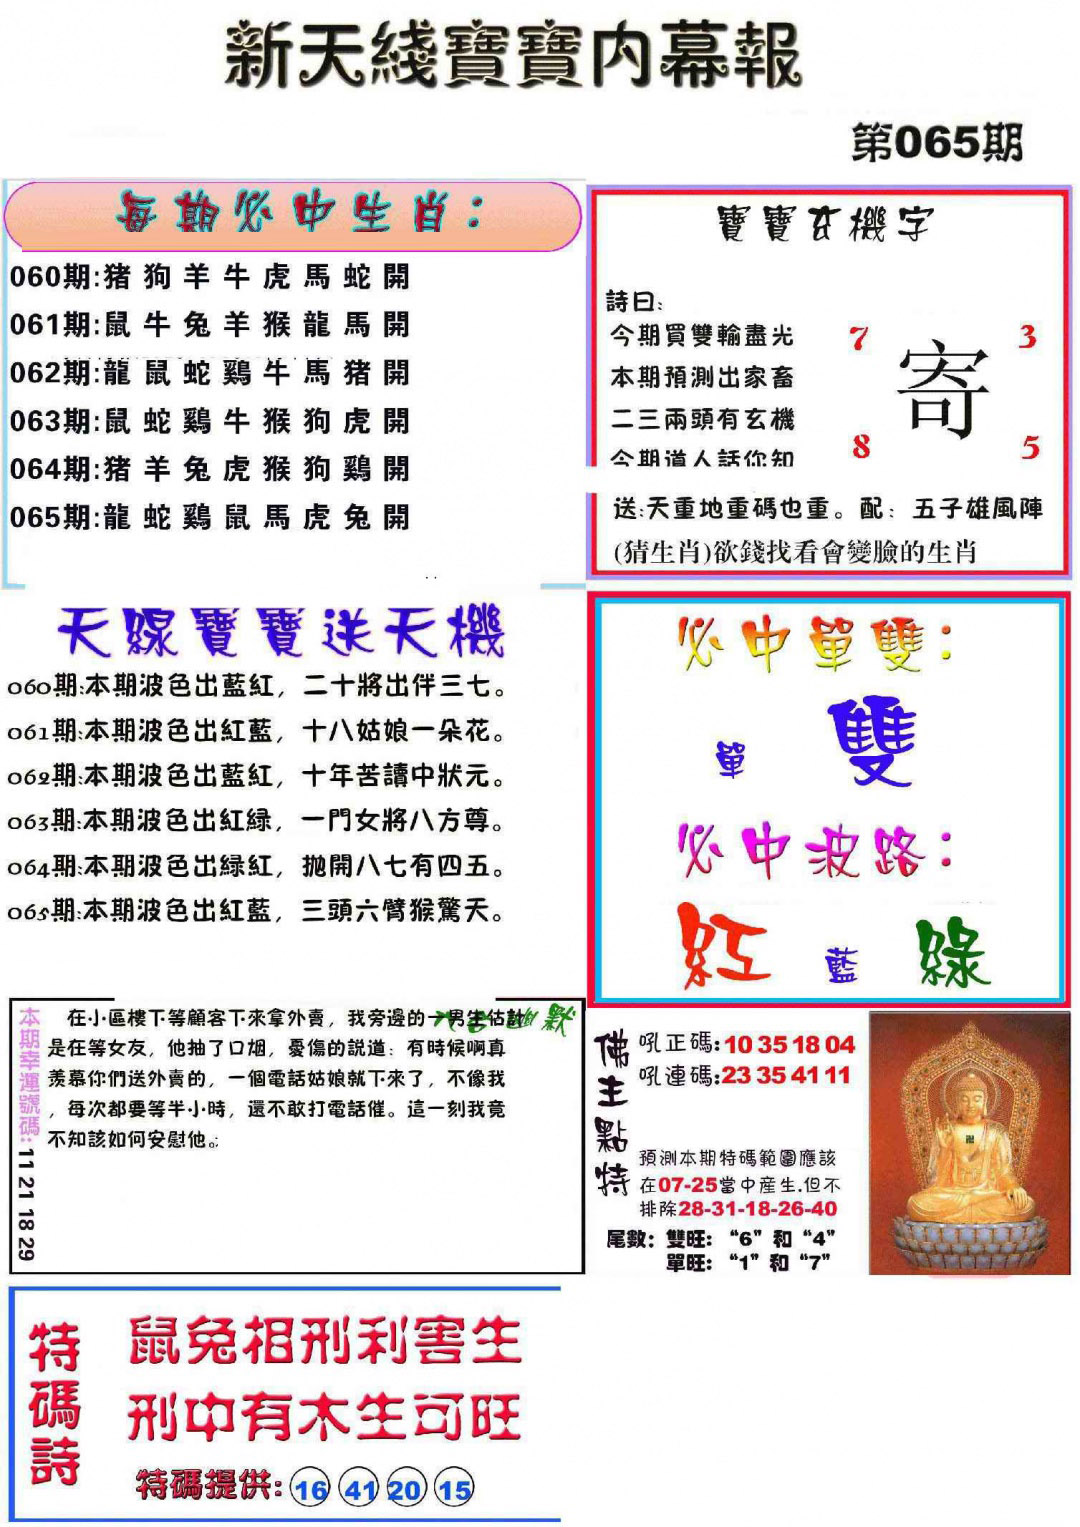 新天綫寶寶内幕報
第065期
每期必中生肖：
060期:猪狗羊牛虎馬蛇開
061期:鼠牛兔羊猴龍馬開
062期:龍鼠蛇鷄牛馬猪開
063期:鼠蛇鷄牛猴狗虎開
064期:猪羊兔虎猴狗鷄開
065期:龍蛇鷄鼠馬虎兔開
寶寶玄機字
詩曰:
今期買雙輸盡光
本期預測出家畜
二三兩頭有玄機
今期道人話你知
7 3
寄
8 5
送:天重地重碼也重。配：五子雄風陣
(猜生肖)欲錢找看會變臉的生肖
天線寶寶送天機
060期:本期波色出藍紅，二十將出伴三七。
061期:本期波色出紅藍，十八姑娘一朵花。
062期:本期波色出藍紅，十年苦讀中狀元。
063期:本期波色出紅緑，一門女將八方尊。
064期:本期波色出緑紅，拋開八七有四五。
065期:本期波色出紅藍，三頭六臂猴驚天。
必中單雙：
單 雙
必中波路：
紅 藍 綠
本期幸運號碼:11 21 18 29
幽默
在小區樓下等顧客下來拿外賣，我旁邊的一男生估計
是在等女友，他抽了口烟，憂傷的說道：有時候啊真
羨慕你們送外賣的，一個電話姑娘就下來了，不像我
，每次都要等半小時，還不敢打電話催。這一刻我竟
不知該如何安慰他。
佛主點特
吼正碼:10 35 18 04
吼連碼:23 35 41 11
預測本期特碼範圍應該
在07-25當中産生.但不
排除28-31-18-26-40
尾數：雙旺：“6”和“4”
單旺：“1”和“7”
特碼詩
鼠兔相刑利害生
刑中有木生可旺
特碼提供: 16 41 20 15